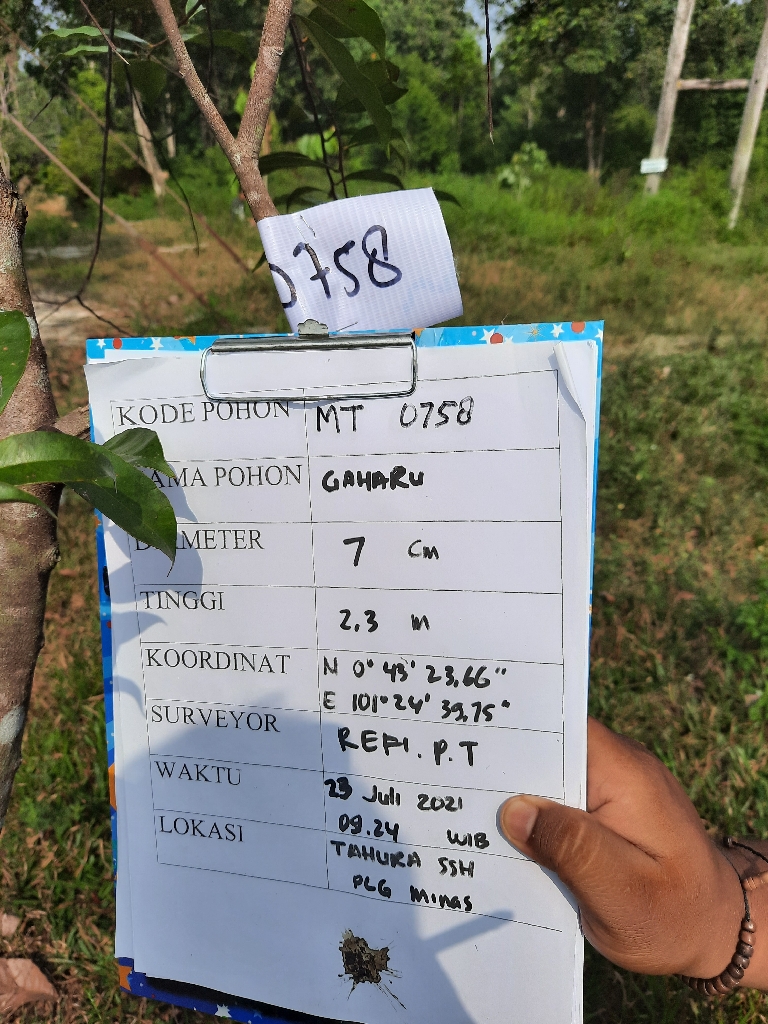 0758
KODE POHON MT 0758
NAMA POHON GAHARU
DIAMETER 7 Cm
TINGGI 2,3 m
KOORDINAT N 0° 43' 23,66"
E 101° 24' 39,75"
SURVEYOR REFI. P.T
WAKTU 23 Juli 2021
09.24 WIB
LOKASI TAHURA SSH
PLG Minas